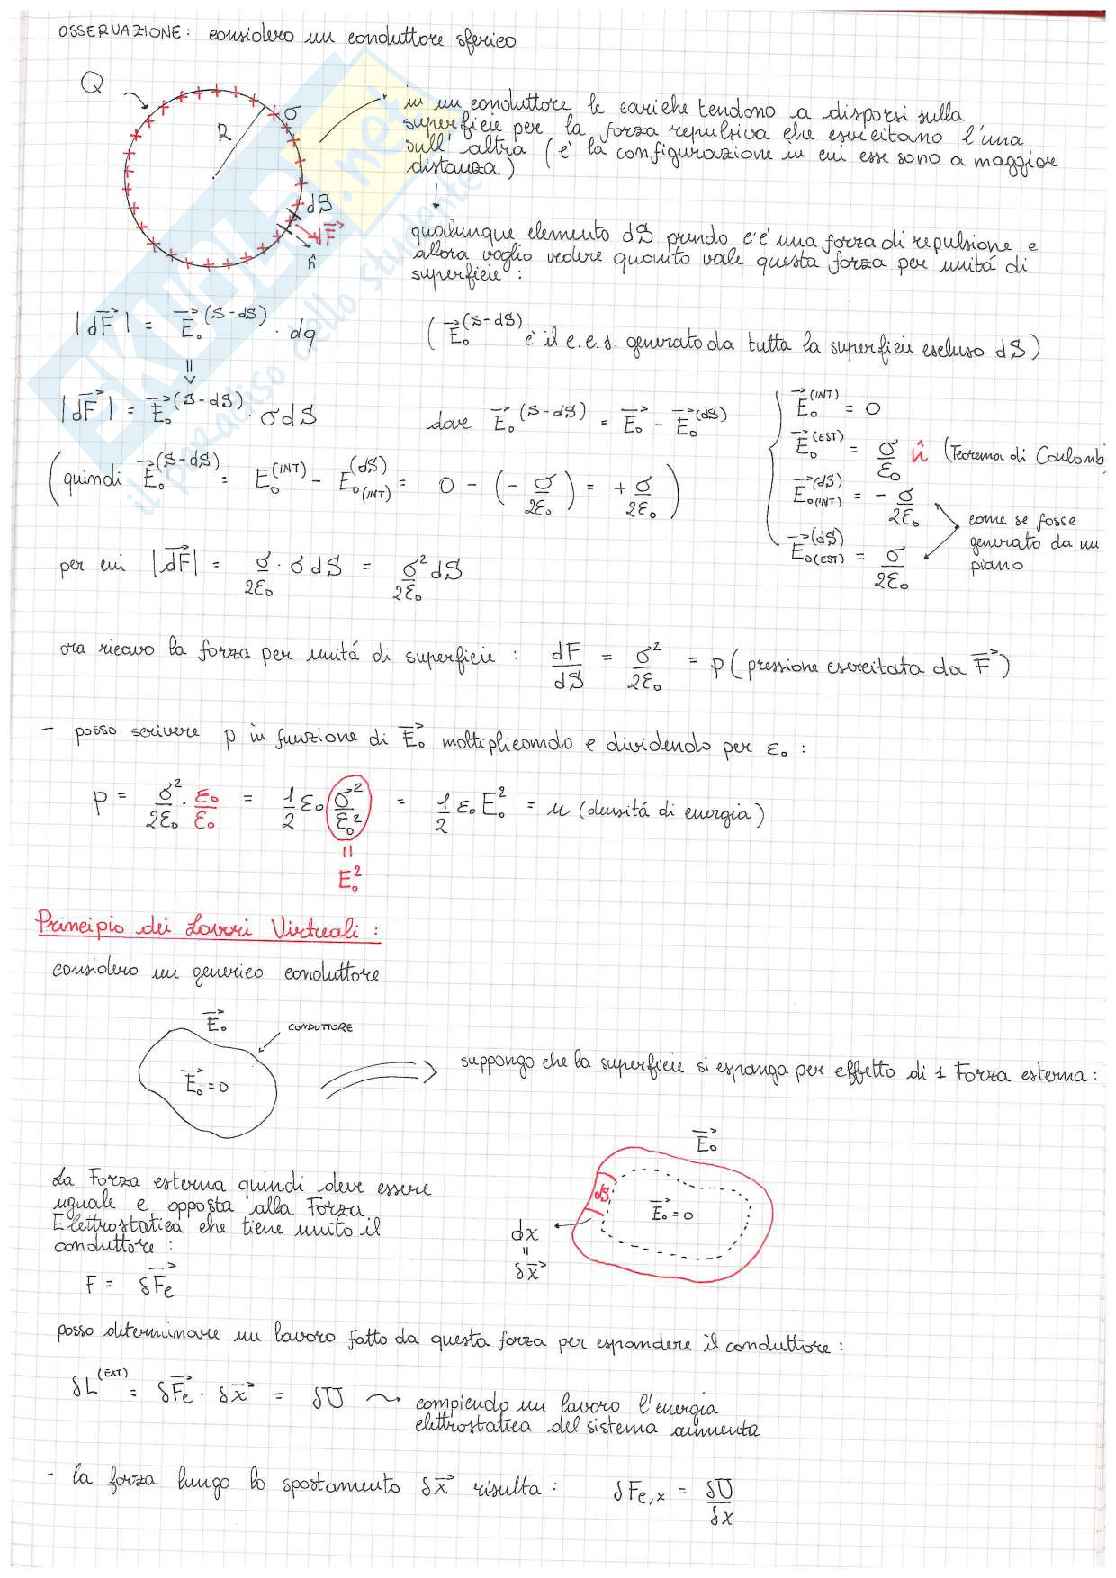 OSSERVAZIONE: considero un conduttore sferico
Q
R
σ
dS
dF⃗
n̂
in un conduttore le cariche tendono a disporsi sulla
superficie per la forza repulsiva che esercitano l'una
sull'altra (è la configurazione in cui esse sono a maggiore
distanza)
qualunque elemento dS prendo c'è una forza di repulsione e
allora voglio vedere quanto vale questa forza per unitá di
superficie:
|dF⃗| = E⃗₀^(S-dS) · dq
(E⃗₀^(S-dS) è il c.e.s. generato da tutta la superficie escluso dS)
=>
|dF⃗| = E⃗₀^(S-dS) · σdS
dove E⃗₀^(S-dS) = E⃗₀ - E⃗₀^(dS)
(quindi E⃗₀^(S-dS) = E₀^(INT) - E₀(INT)^(dS) = 0 - (- σ/2ε₀) = + σ/2ε₀)
E⃗₀^(INT) = 0
E⃗₀^(EST) = σ/ε₀ n̂ (Teorema di Coulomb)
E⃗₀(INT)^(dS) = - σ/2ε₀
E⃗₀(EST)^(dS) = σ/2ε₀
come se fosse
generato da un
piano
per cui |dF⃗| = σ/2ε₀ · σdS = σ²/2ε₀ dS
ora ricavo la forza per unitá di superficie: dF/dS = σ²/2ε₀ = p (pressione esercitata da F⃗)
- posso scrivere p in funzione di E⃗₀ moltiplicando e dividendo per ε₀:
p = σ²/2ε₀ · ε₀/ε₀ = 1/2 ε₀ σ²/ε₀² = 1/2 ε₀E₀² = u (densitá di energia)
=
E₀²
Principio dei Lavori Virtuali:
considero un generico conduttore
E⃗₀
CONDUTTORE
E⃗₀ = 0
suppongo che la superficie si espanga per effetto di 1 Forza esterna:
E⃗₀
dS
E⃗₀ = 0
dx
=
δx⃗
La Forza esterna quindi deve essere
uguale e opposta alla Forza
Elettrostatica che tiene unito il
conduttore:
F = δF⃗e
posso diterminare un lavoro fatto da questa forza per espandere il conduttore:
δL^(EXT) = δF⃗e · δx⃗ = δU ⤳ compiendo un lavoro l'energia
elettrostatica del sistema aumenta
- la forza lungo lo spostamento δx⃗ risulta: δFe,x = δU/δx
SKUOLA.net
il paradiso dello studente